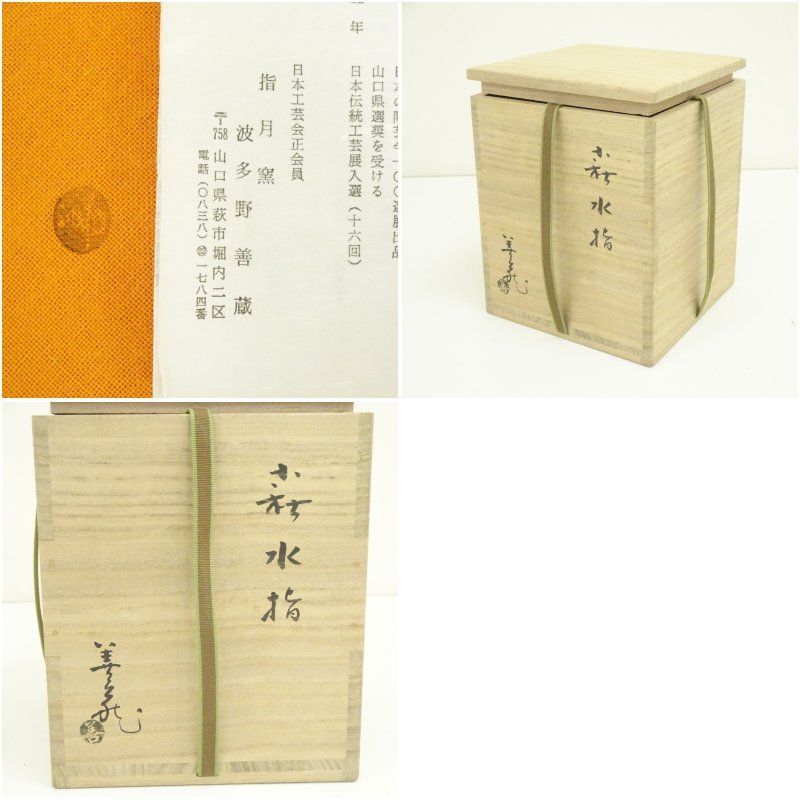 年
日本の陶芸今一〇〇選展出品
山口県選奨を受ける
日本伝統工芸展入選(十六回)
日本工芸会正会員
指月窯
波多野善蔵
〒758 山口県萩市堀内二区
電話(〇八三八)㉒一七八四番
萩水指
善蔵
萩水指
善蔵
善